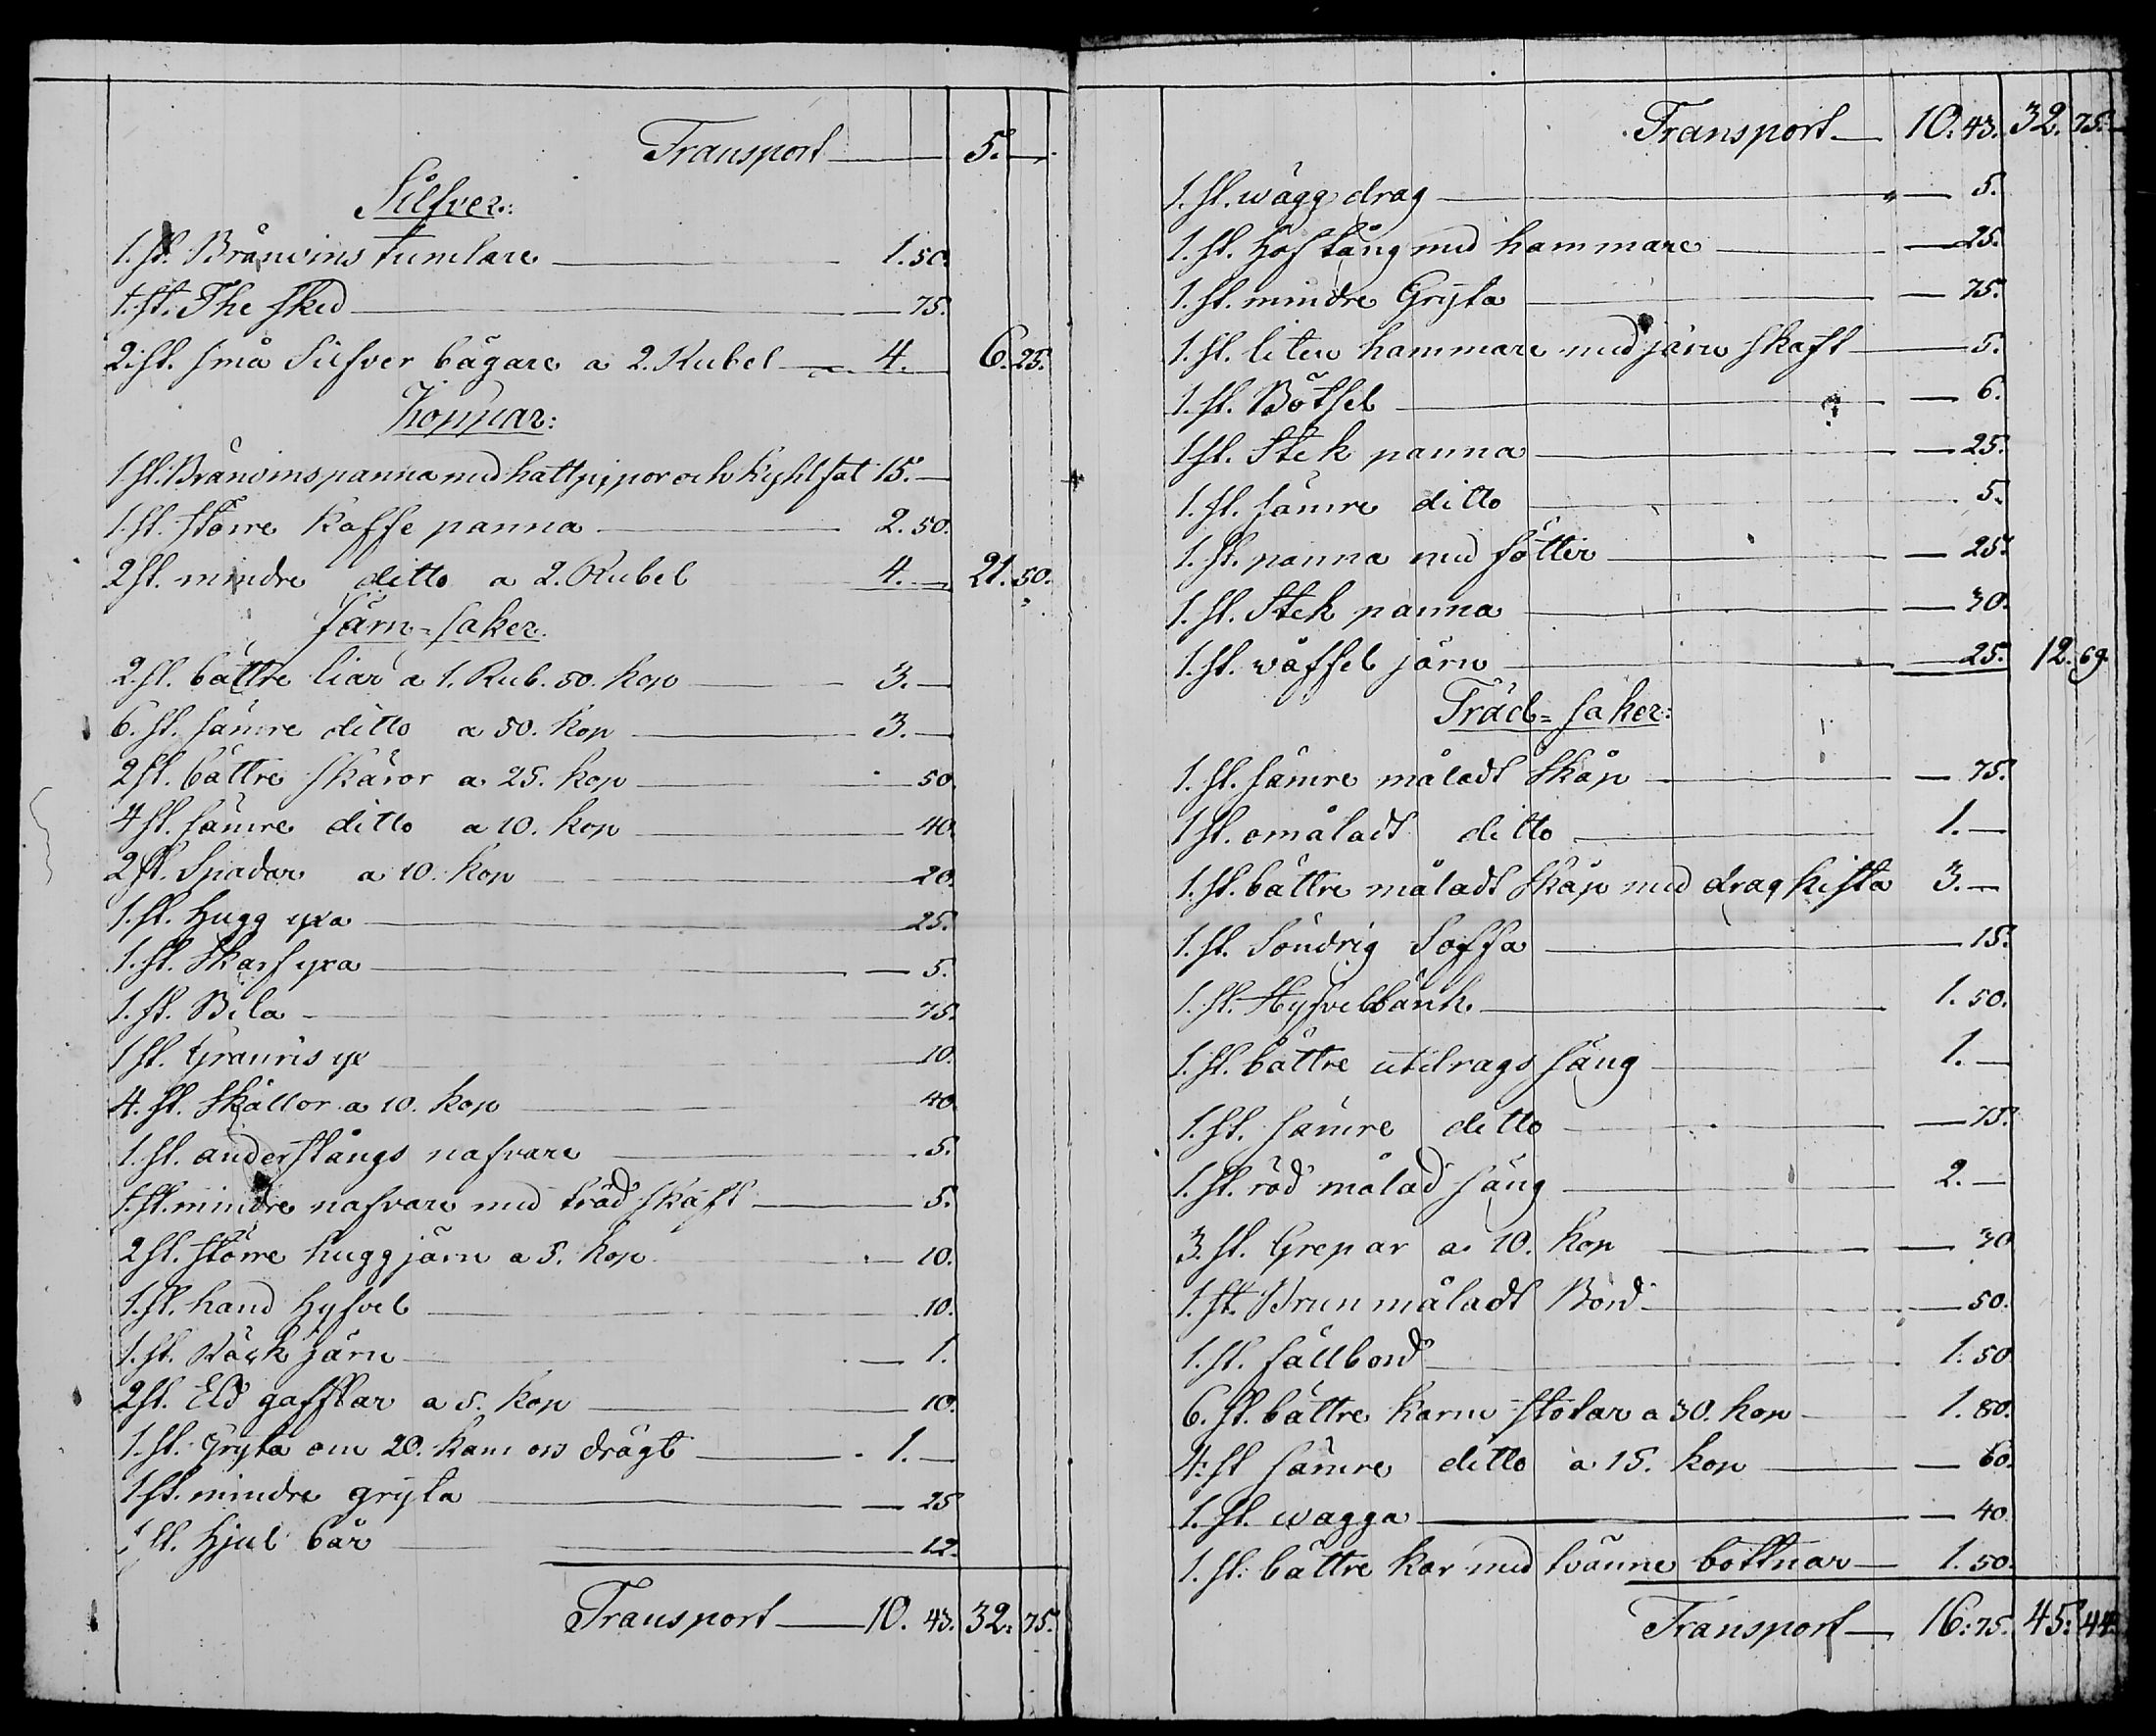 Transport 5.
Silfver:
1. st. Bränvins tumlare 1. 50.
1. st. The sked 75.
2. st. små Silfver bägare a 2. Rubel 4. 6. 25.
Koppar:
1 st. Bränvins panna med hatt pippor och Kyhl fat 15.
1. st. större Kaffe panna 2. 50.
2 st. mindre ditto a 2. Rubel 4. 21. 50.
Järn-saker.
2. st. bättre liar a 1. Rub. 50. Kop 3.
6. st. sämre ditto a 50. Kop 3.
2 st. bättre skäror a 25. Kop 50.
4 st. sämre ditto a 10. Kop 40.
2 st. Spadar a 10. Kop 20.
1. st. Hugg yxa 25.
1. st. Skarf yxa 5.
1. st. Bila 75.
1 st. Granris yx 10.
4. st. Skällor a 10. Kop 40.
1. st. anderstångs nafvare 5.
1. st. mindre nafvare med träd skaft 5.
2 st. större huggjärn a 5. Kop 10.
1. st. hand Hyfvel 10.
1. st. järn 1.
2 st. Eld gafflar a 5. Kop 10.
1. st. Gryta om 20. Kannors drägt 1.
1 st. mindre gryta 25
1 st. Hjul bär 12.
Transport 10. 43. 32. 75.
Transport 10. 43. 32. 75.
1. st. wägg drag 5.
1. st. Hof tång med hammare 25.
1. st. mindre Gryta 75.
1. st. liten hammare med järn skaft 5.
1. st. Bötsel 6.
1 st. Stek panna 25.
1. st. sämre ditto 5.
1. st. panna med fötter 25.
1. st. Stek panna 30.
1. st. wåffel järn 25. 12. 69.
Träd-saker:
1. st. sämre måladt Skåp 75.
1 st. omåladt ditto 1.
1. st. bättre måladt Skåp med dragkista 3.
1. st. Söndrig Soffa 15.
1. st. Hyfvelbänk 1. 50.
1. st. bättre utdrags säng 1.
1. st. sämre ditto 75.
1. st. röd målad säng 2.
3. st. Grepar a 10. Kop 30
1. st. Brun måladt Bord 50.
1. st. fällbord 1. 50
6. st. bättre Karm stolar a 30. Kop 1. 80.
4. st sämre ditto a 15. Kop 60.
1. st. wagga 40
1. st. bättre Kar med tvänne bottnar 1. 50.
Transport 16. 75. 45. 44.